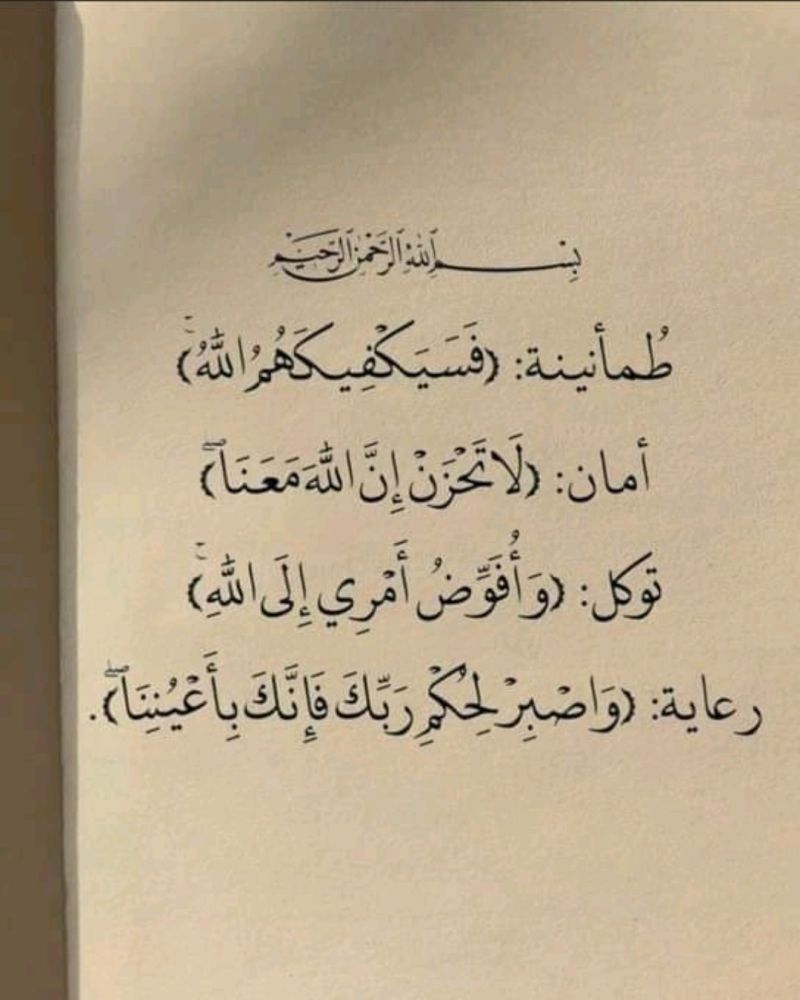 بِسْمِ ٱللَّهِ ٱلرَّحْمَٰنِ ٱلرَّحِيمِ
طُمأنينة: (فَسَيَكْفِيكَهُمُ اللَّهُ ۚ)
أمان: (لَا تَحْزَنْ إِنَّ اللَّهَ مَعَنَا ۖ)
توكل: (وَأُفَوِّضُ أَمْرِي إِلَى اللَّهِ ۚ)
رعاية: (وَاصْبِرْ لِحُكْمِ رَبِّكَ فَإِنَّكَ بِأَعْيُنِنَا ۖ).